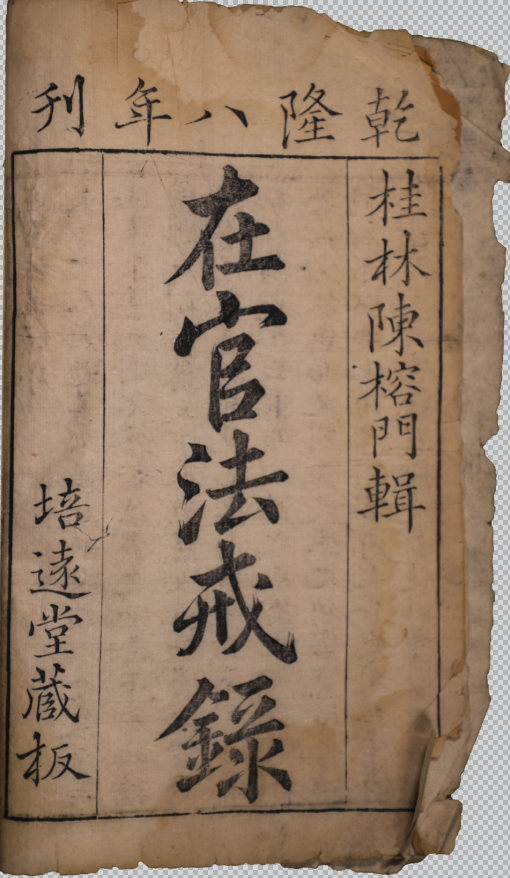 乾隆八年刊
桂林陳榕門輯
在官法戒錄
培遠堂蔵板